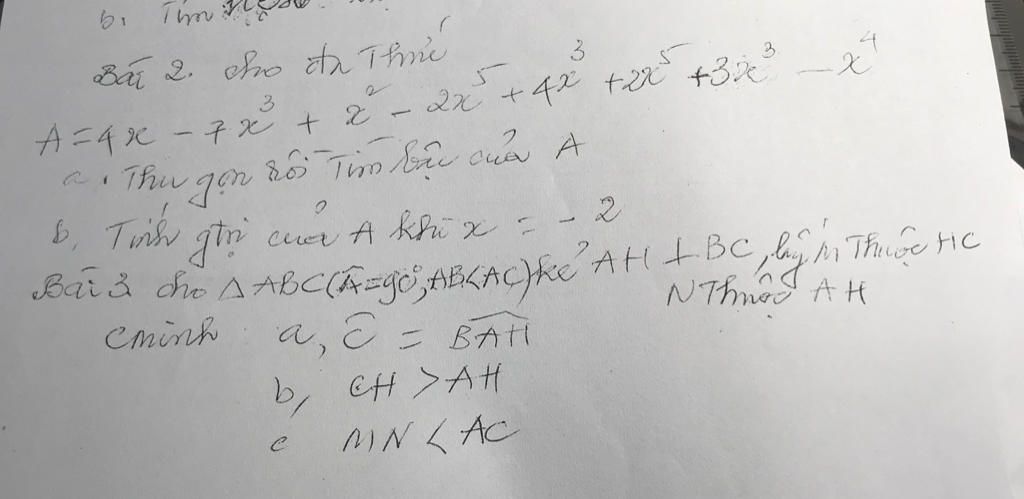 b. Tìm
Bài 2. cho đa Thức
A = 4x - 7x³ + x² - 2x⁵ + 4x³ + 2x⁵ + 3x³ - x⁴
a. Thu gọn rồi Tìm bậc của A
b, Tính gtrị của A khi x = - 2
Bài 3 cho △ABC(Â=90°, AB<AC) kẻ AH ⊥ BC, lấy M Thuộc HC
N Thuộc AH
cminh a, Ĉ = BAH
b, CH > AH
c MN < AC